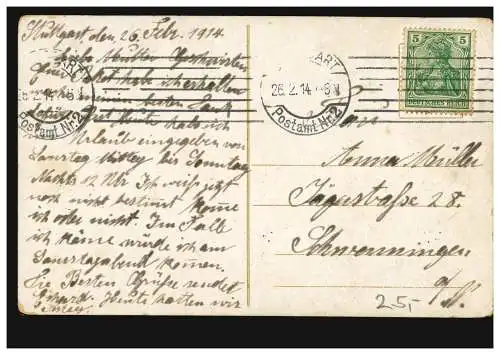 Stuttgart den 26 Febr. 1914
Liebe Mutter Geschwister
Euer Paket hab ich erhalten
meinen besten Dank
dafür heute hab ich
Urlaub eingegeben von
Samstag Mittag bis Sonntag
Nachts 12 Uhr Ich weiß jetzt
noch nicht bestimmt komme
ich oder nicht. Im Falle
ich käme würde ich am
Samstagabend kommen.
Die Besten Grüße sendet
Erhard. Heute hatten wir
26.2.14
Postamt Nr. 2
STUTTGART
26.2.14
Postamt Nr. 2
5 5
DEUTSCHES REICH
An
Anna Müller
Jägerstraße 28.
Schwenningen
a/N.
25,-